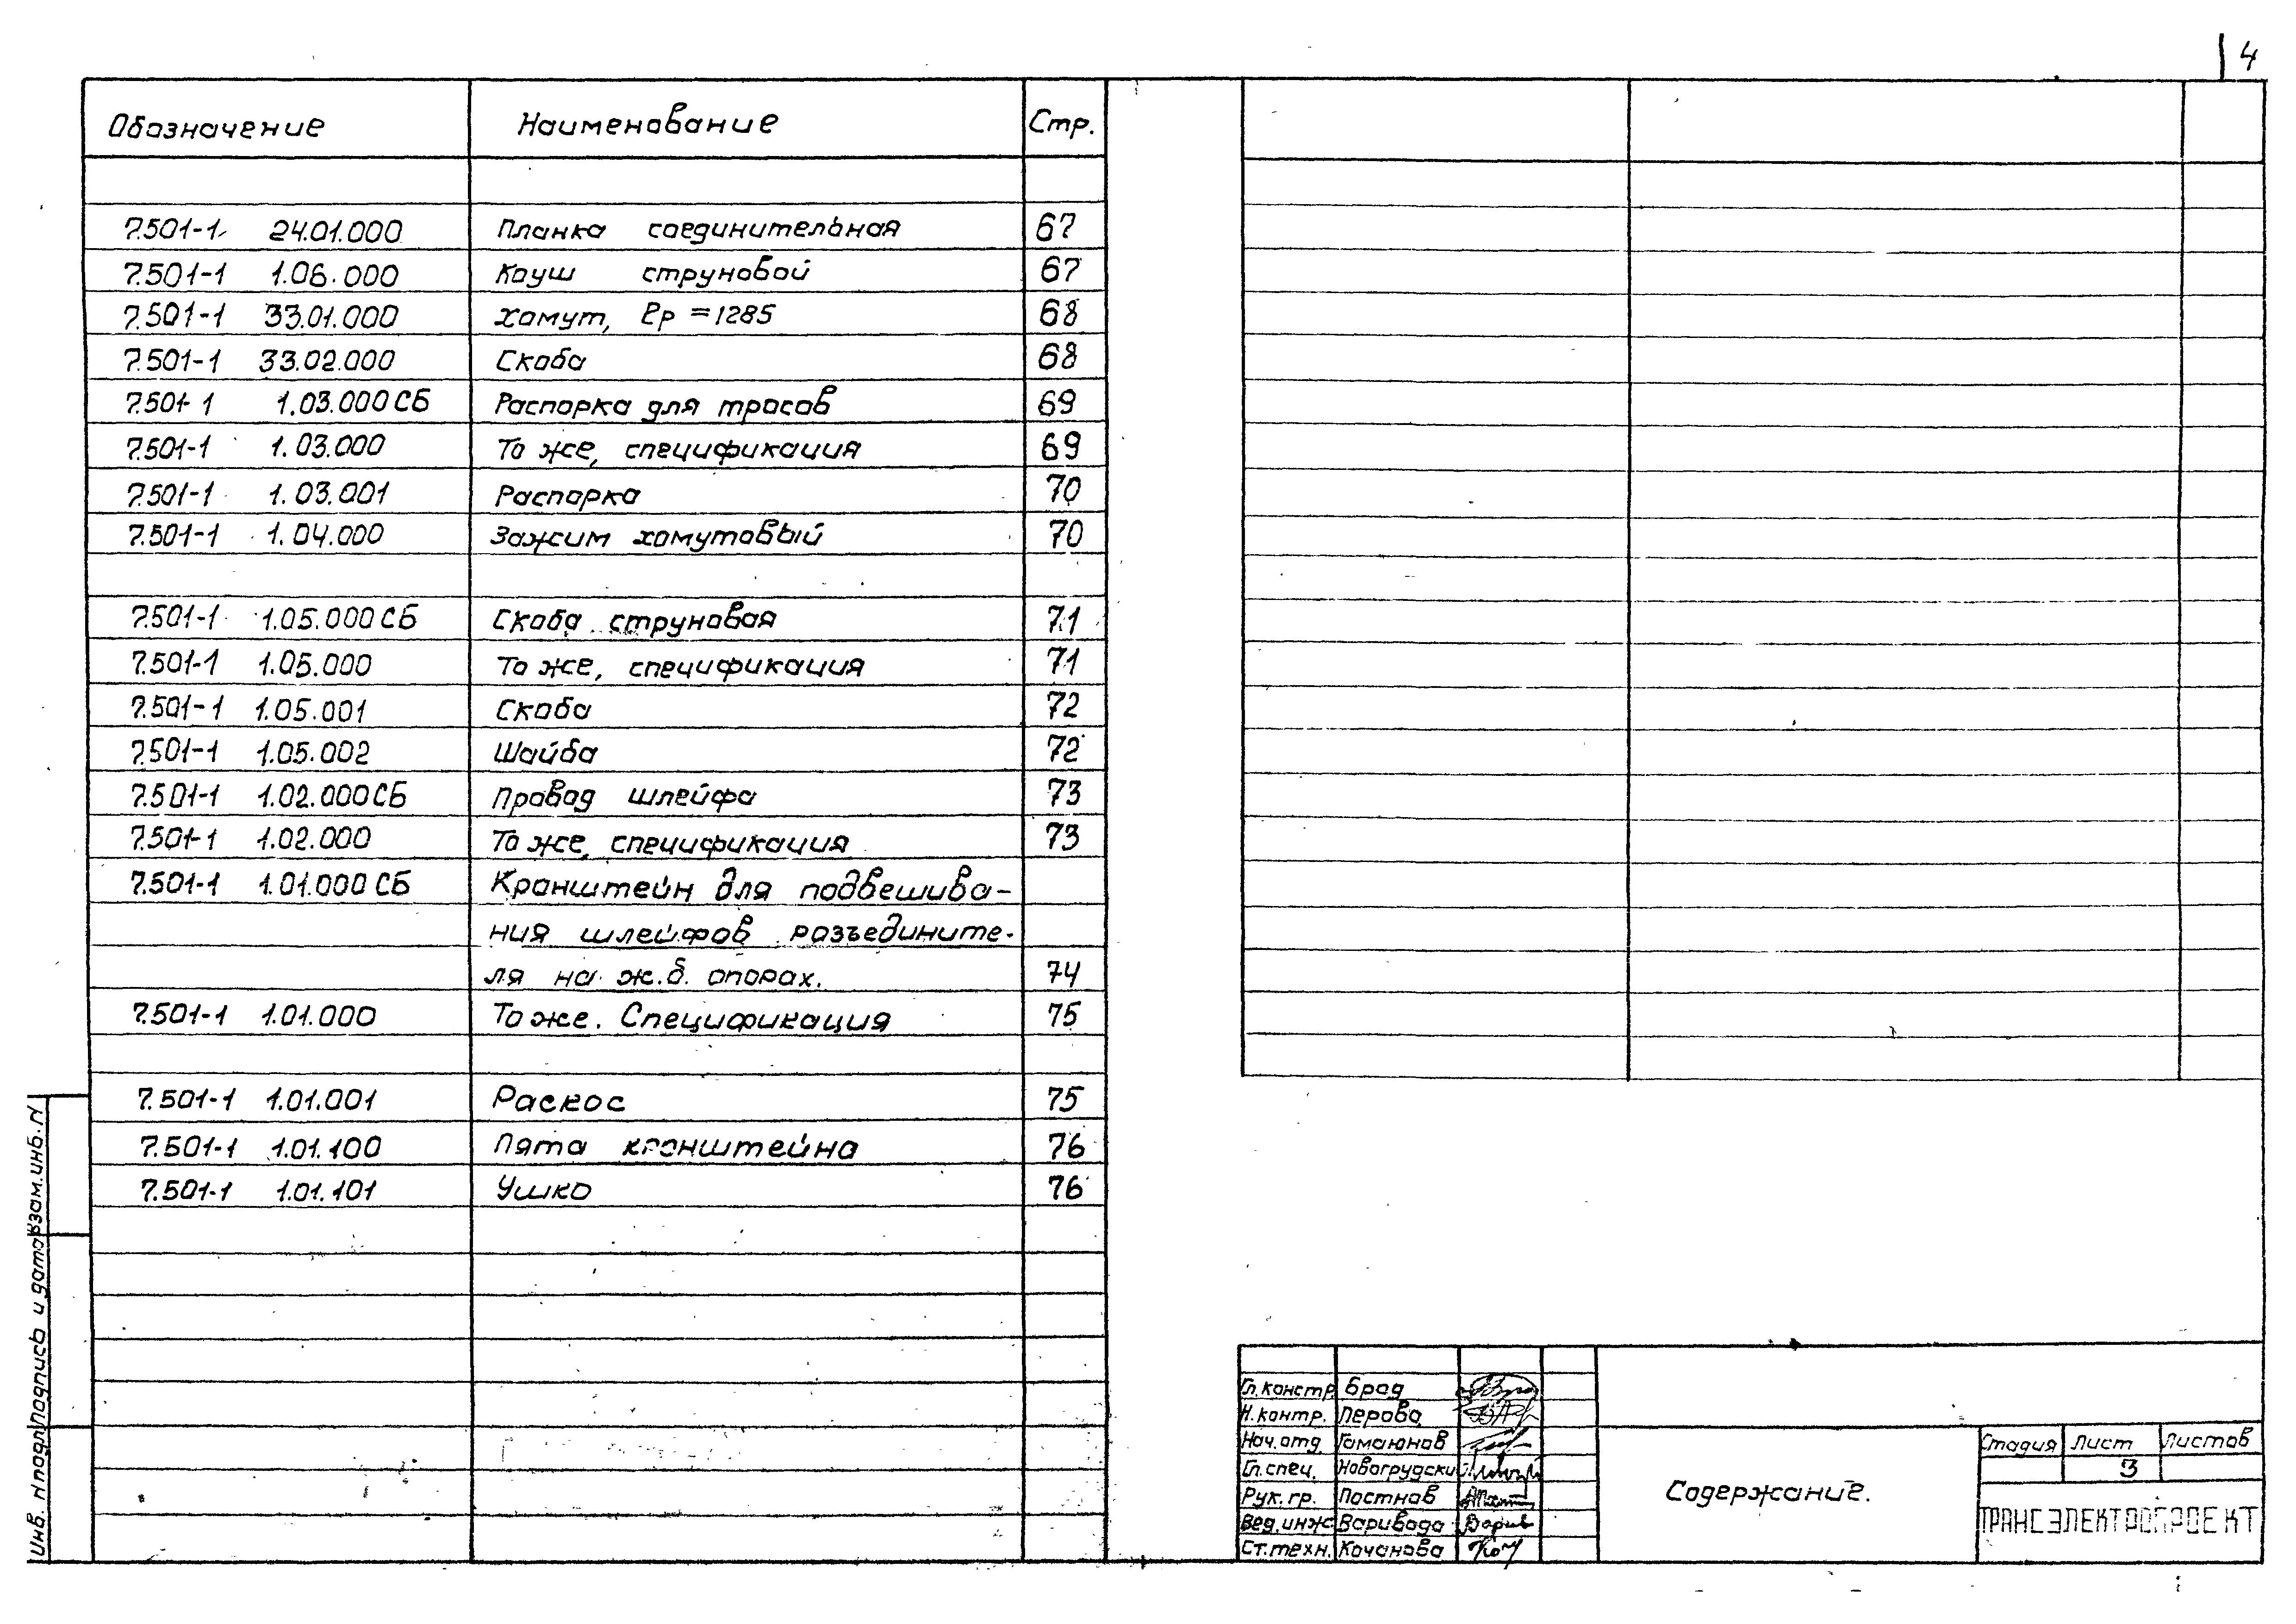 4
Обозначение Наименование Стр.
7.501-1 24.01.000 Планка соединительная 67
7.501-1 1.06.000 Коуш струновой 67
7.501-1 33.01.000 Хомут, ℓр =1285 68
7.501-1 33.02.000 Скоба 68
7.501-1 1.03.000 СБ Распорка для тросов 69
7.501-1 1.03.000 То же, спецификация 69
7.501-1 1.03.001 Распорка 70
7.501-1 1.04.000 Зажим хомутовый 70
7.501-1 1.05.000 СБ Скоба струновая 71
7.501-1 1.05.000 То же, спецификация 71
7.501-1 1.05.001 Скоба 72
7.501-1 1.05.002 Шайба 72
7.501-1 1.02.000 СБ Провод шлейфа 73
7.501-1 1.02.000 То же, спецификация 73
7.501-1 1.01.000 СБ Кронштейн для подвешива-
ния шлейфов разъедините-
ля на ж.б. опорах. 74
7.501-1 1.01.000 То же. Спецификация 75
7.501-1 1.01.001 Раскос 75
7.501-1 1.01.100 Пята кронштейна 76
7.501-1 1.01.101 Ушко 76
Инв. N подл Подпись и дата Взам.инв. N
Гл.констр. Брод
Н.контр. Перова
Нач.отд Гамаюнов
Гл.спец. Новогрудский
Рук.гр. Постнов
Вед.инж Варивода
Ст.техн. Кочанова
Содержание.
Стадия Лист Листов
3
ТРАНСЭЛЕКТРОПРОЕКТ